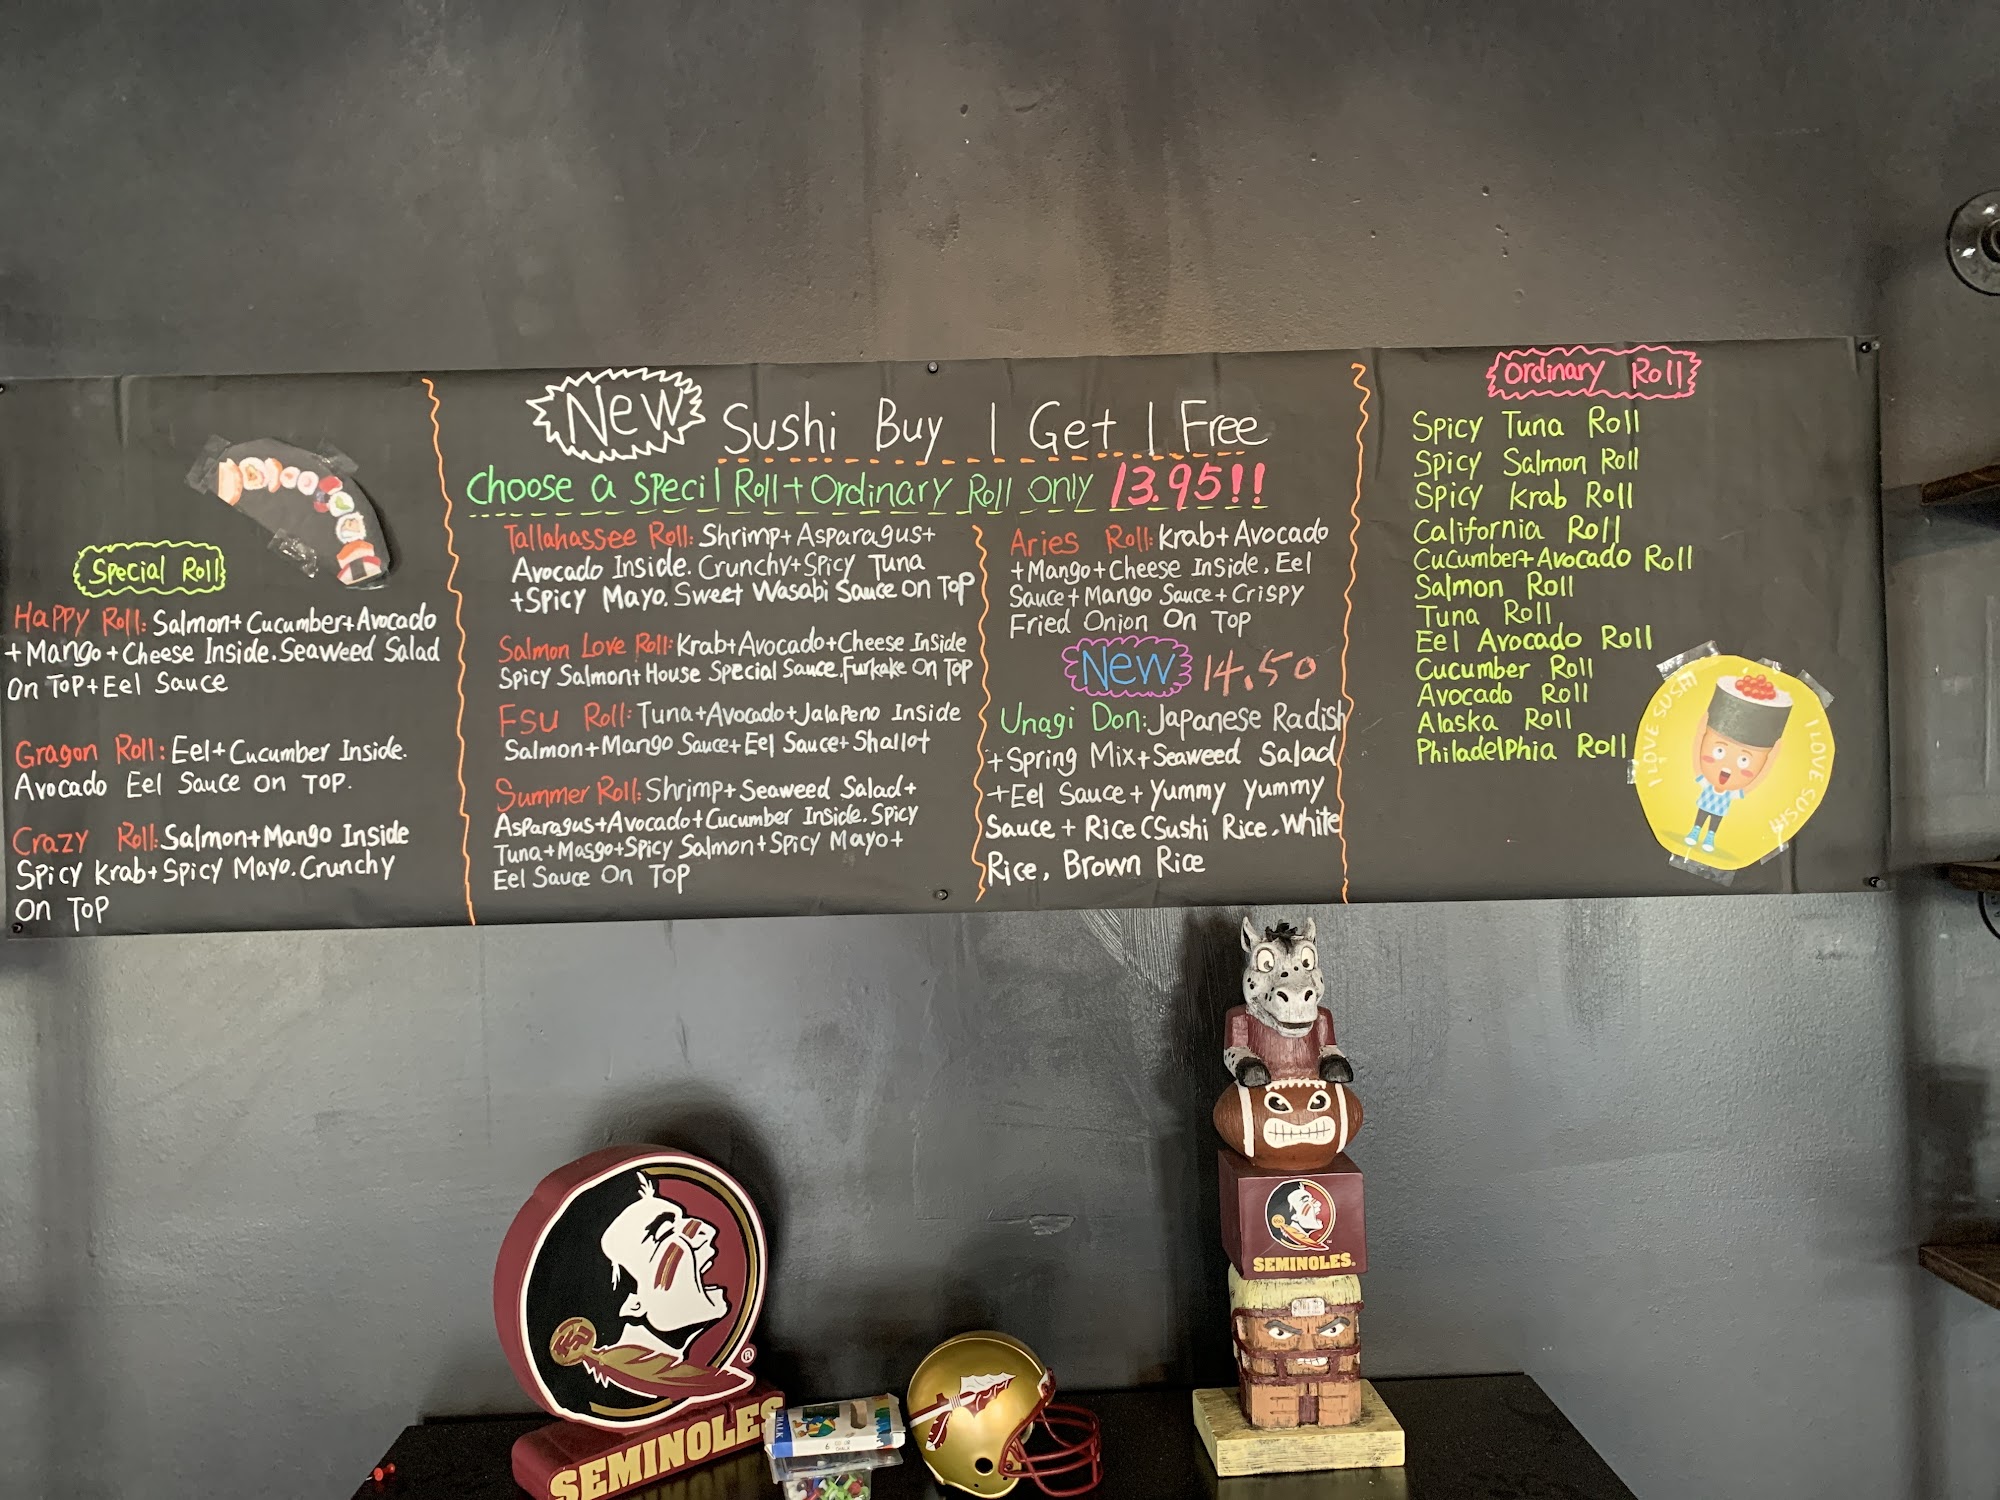 Special Roll
Happy Roll: Salmon+Cucumber+Avocado
+Mango+Cheese Inside.Seaweed Salad
On Top+Eel Sauce
Gragon Roll: Eel+Cucumber Inside.
Avocado Eel Sauce On Top.
Crazy Roll: Salmon+Mango Inside
Spicy Krab+Spicy Mayo.Crunchy
On Top
New Sushi Buy 1 Get 1 Free
Choose a Specil Roll+Ordinary Roll Only 13.95!!
Tallahassee Roll: Shrimp+Asparagus+
Avocado Inside. Crunchy+Spicy Tuna
+Spicy Mayo. Sweet Wasabi Sauce On Top
Salmon Love Roll: Krab+Avocado+Cheese Inside
Spicy Salmon+House Special Sauce.Furkake On Top
FSU Roll: Tuna+Avocado+Jalapeno Inside
Salmon+Mango Sauce+Eel Sauce+Shallot
Summer Roll: Shrimp+Seaweed Salad+
Asparagus+Avocado+Cucumber Inside. Spicy
Tuna+Masgo+Spicy Salmon+Spicy Mayo+
Eel Sauce On Top
Aries Roll: Krab+Avocado
+Mango+Cheese Inside, Eel
Sauce+Mango Sauce+Crispy
Fried Onion On Top
New 14.50
Unagi Don: Japanese Radish
+Spring Mix+Seaweed Salad
+Eel Sauce+Yummy Yummy
Sauce + Rice (Sushi Rice, White
Rice, Brown Rice
Ordinary Roll
Spicy Tuna Roll
Spicy Salmon Roll
Spicy Krab Roll
California Roll
Cucumber+Avocado Roll
Salmon Roll
Tuna Roll
Eel Avocado Roll
Cucumber Roll
Avocado Roll
Alaska Roll
Philadelphia Roll
I LOVE SUSHI
I LOVE SUSHI
SEMINOLES
CHALK
SEMINOLES